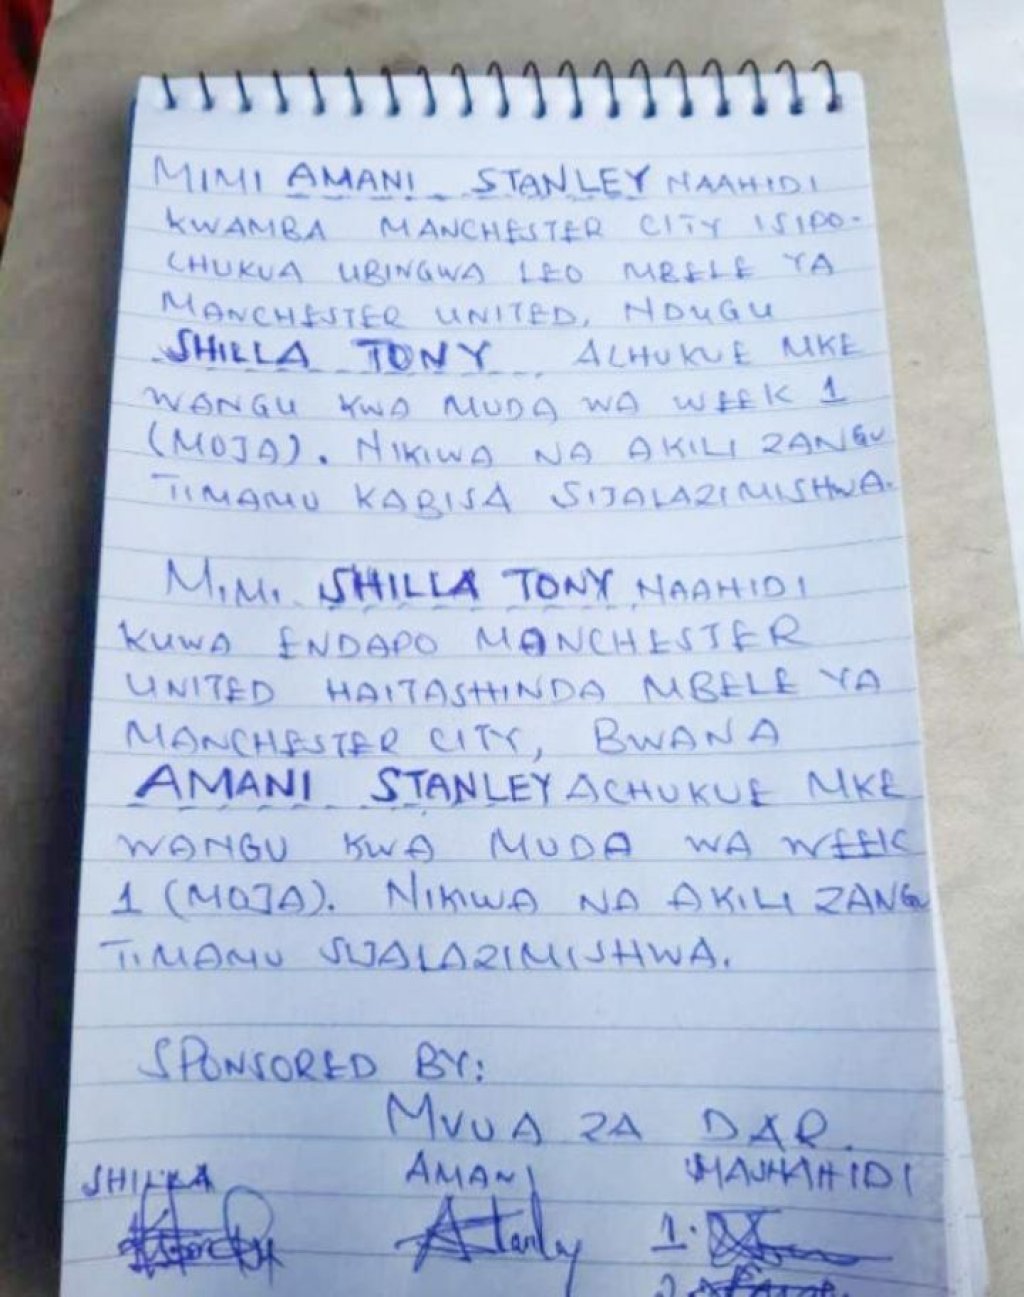 MIMI AMANI STANLEY NAAHIDI
KWAMBA MANCHESTER CITY ISIPO-
CHUKUA UBINGWA LEO MBELE YA
MANCHESTER UNITED, NDUGU
SHILLA TONY ACHUKUE MKE
WANGU KWA MUDA WA WEEK 1
(MOJA). NIKIWA NA AKILI ZANGU
TIMAMU KABISA SIJALAZIMISHWA.
MIMI SHILLA TONY NAAHIDI
KUWA ENDAPO MANCHESTER
UNITED HAITASHINDA MBELE YA
MANCHESTER CITY, BWANA
AMANI STANLEY ACHUKUE MKE
WANGU KWA MUDA WA WEEK
1 (MOJA). NIKIWA NA AKILI ZANGU
TIMAMU SIJALAZIMISHWA.
SPONSORED BY:
MVUA ZA DAR.
SHILLA AMANI MASHAHIDI
Stanley 1.
2